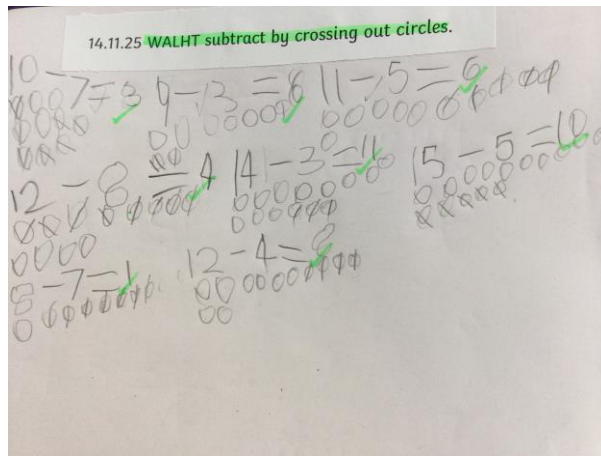 14.11.25 WALHT subtract by crossing out circles.
10-7=3 9-3=6 11-5=6
12-8=4 14-3=11 15-5=10
8-7=1 12-4=8